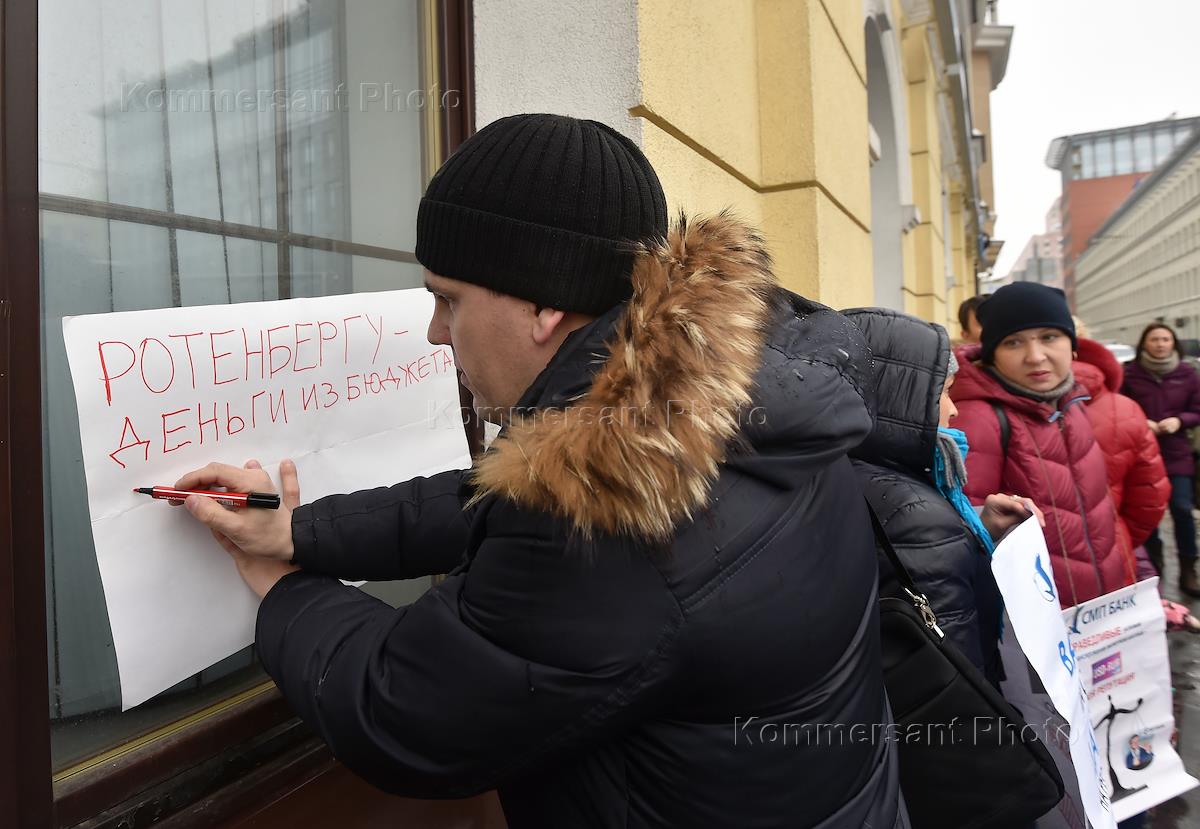 Kommersant Photo
РОТЕНБЕРГУ-
ДЕНЬГИ ИЗ БЮДЖЕТА
Kommersant Photo
СМП БАНК
USD-RUR
РЕПУТАЦИЯ
Kommersant Photo